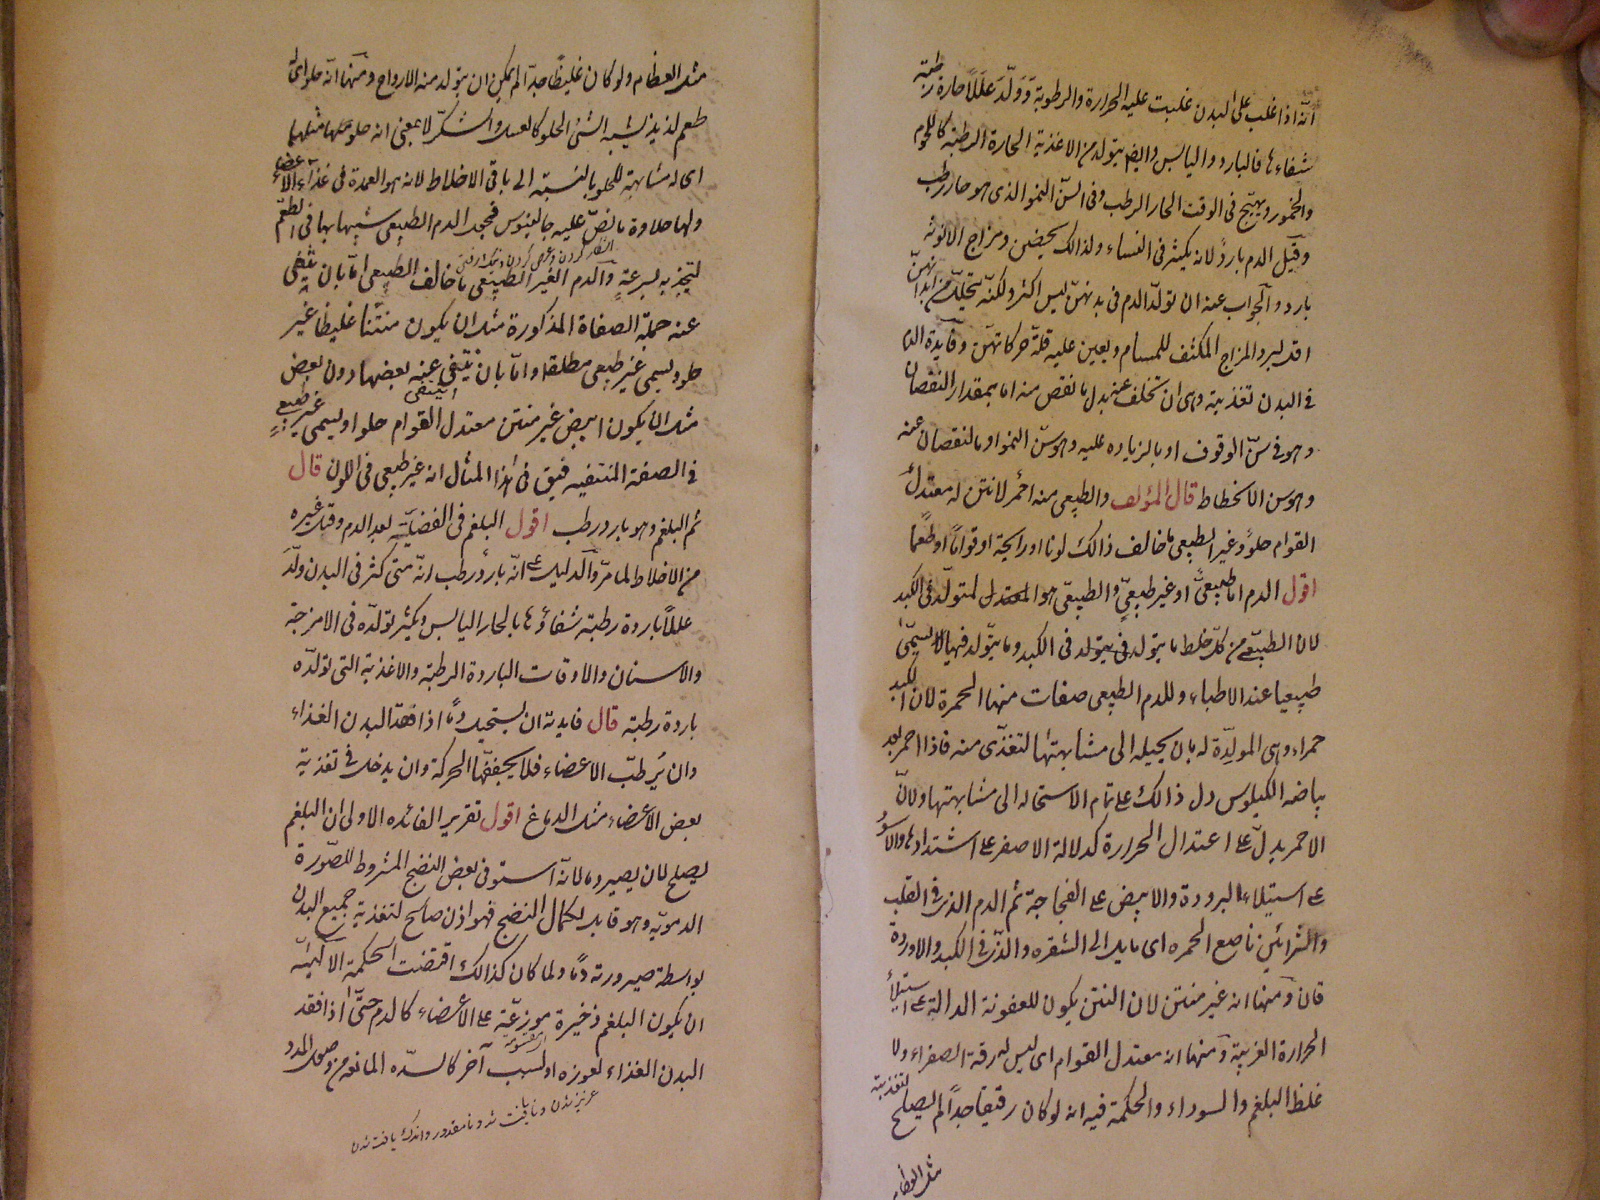 انّه اذا غلب على البدن غلبت عليه الحرارة والرطوبة وَوَلّدَ عللًا حارة رطبة
شفاءها فالبارد واليابس وايضا يتولد من الاغذية الحارة الرطبة كاللحوم
والخمور ويهيّج فى الوقت الحار الرطب وفى السنّ النمو الذى هو حار رطب
وقيل الدم باردٌ لانه يكثر فى النساء ولذالك يحيضن ومزاج الانوثة
بارد والجواب عنه ان تولّد الدم فى بدنهنّ ليس اكثر ولكنّه تحلّله من ابدانهنّ
اقد لبرد المزاج المكثف للمسام ويعين عليه قلّة حركاتهنّ وفايدة الدم
فى البدن تغذيته وهى ان تخلف عنه بدل ما نقص منه اما بمقدار النقصان
وهو فى سنّ الوقوف او بالزياده عليه وهو سنّ النمو او بالنقصان عنه
وهو سن الانحطاط قال المؤلف والطبيعى منه احمر لانتن له معتدل
القوام حلوٌ وغير الطبيعى ما خالف ذالك لونا او رايحة او قواماً او طعمًا
اقول الدم اما طبيعىٌّ او غير طبيعىٍّ والطبيعىّ هو المعتدل المتولّد فى الكبد
لان الطبيعى من كلّ خلط ما يتولد فى الكبد وما يتولد فيها لا يسمّى
طبيعيا عند الاطباء وللدم الطبيعى صفات منها الحمرة لان الكبد
حمراء وهى المولدّة له بان يحيله الى مشابهتها لتغذّى منه فاذا احمر بعد
بياضه الكيلوس دل ذالك على تمام الاستحاله الى مشابهتها ولانّ
الاحمر يدلّ على اعتدال الحرارة كدلالة الاصفر على اشتدادها والاسود
على استيلاء البرودة والابيض على الفجاجة ثم الدم الذى فى القلب
والشرائين ناصع الحمره اى مايل الى الشقره والذى فى الكبد والاوردة
قانٍ ومنها انه غير منتن لان النتن يكون للعفونة الدالة على استيلأ
الحرارة الغريبة ومنها انه معتدل القوام اى ليس له رقة الصفراء ولا
غلظ البلغم والسوداء والحكمة فيه انه لو كان رقيقا جداً لم يصلح لتغذية
مثل العظام
مثل العظام ولو كان غليظًا جدّا لم يمكن ان يتولد منه الارواح ومنها انّه حلو اى له
طعم لذيذ يشبه الشئ الحلو كالعسل والسّكّر لا بمعنى انه حلو مثلهما
اى له مشابهة للحلو بالنسبة الى باقى الاخلاط لانه هو العمدة فى غذآء الاعضاء
ولها حلاوة ما نصّ عليه جالينوس فيجب الدم الطبيعى شبيها بها فى الطعم
لتجذبه بسرعةٍ والدم الغير الطبيعى ما خالف الطبيعى امّا بان ينتفى
عنه جملة الصفاة المذكورة مثل ان يكون منتنا غليظا غير
حلو ويسمى غير طبيعى مطلقا وامّا بان ينتفى عنه بعضها دون بعض
مثل ان يكون ابيض غير منتن معتدل القوام حلوا ويسمى غير طبيعىٍ
فى الصفة المنتفيه فيق فى هٰذا المثال انه غير طبيعى فى اللون قال
ثم البلغم وهو بارد رطب اقول البلغم فى الفضيلة بعد الدم وقبل غيره
من الاخلاط لما مرّ والدليل على انّه باردٌ رطب انّه متى كثر فى البدن ولّدَ
عللاً باردة رطبة شفاؤها بالحار اليابس ويكثر تولّده فى الامزجة
والاسنان والاوقات الباردة الرطبة والاغذية التى تولّده
باردة رطبة قال فايدته ان يستحيل دمًا اذا فقد البدن الغذاء
وان يُرطّب الاعضاء فلا يجففها الحركة وان يدخل فى تغذية
بعض الاعضاء مثل الدماغ اقول تقرير الفائده الاولى ان البلغم
يصلح لان يصير دما لانّه استوفى بعض النضج المشروط للصّورة
الدمويّه وهو قابل لكمال النضج فهو اذن صالح لتغذية جميع البدن
بواسطة صيرورته دمًا ولما كان كذالك اقتضت الحكمة الآلهيّه
ان يكون البلغم ذخيرة موزعّة على الاعضاء كالدم حتّى اذا فقد
البدن الغذاء لعوزه او لسبب آخر كالسدّه المانعه من وصول المدد